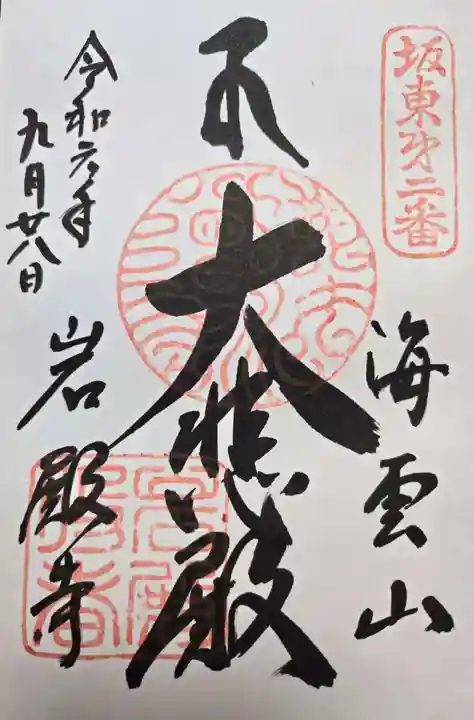 坂東第二番
海雲山
大悲殿
岩殿寺
令和元年
九月廿八日